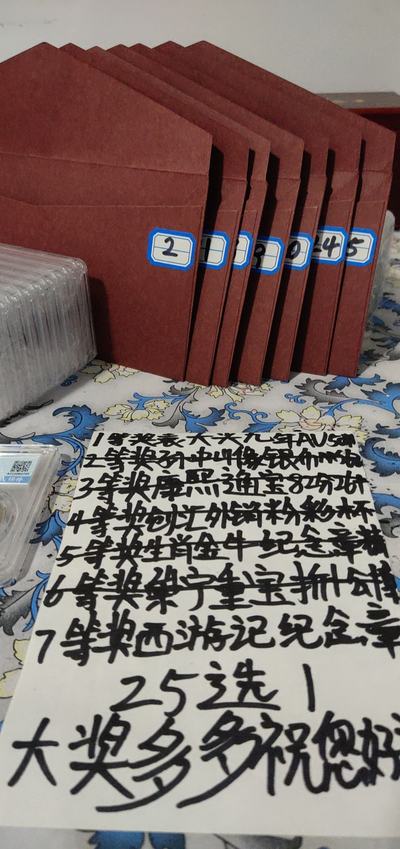 2
0
24
5
1等奖袁大头九年AU
2等奖孙中山像银币MS
3等奖康熙通宝82分
4等奖创汇外销粉彩杯
5等奖生肖金牛纪念章
6等奖崇宁重宝折十
7等奖西游记纪念章
25选1
大奖多多祝您好